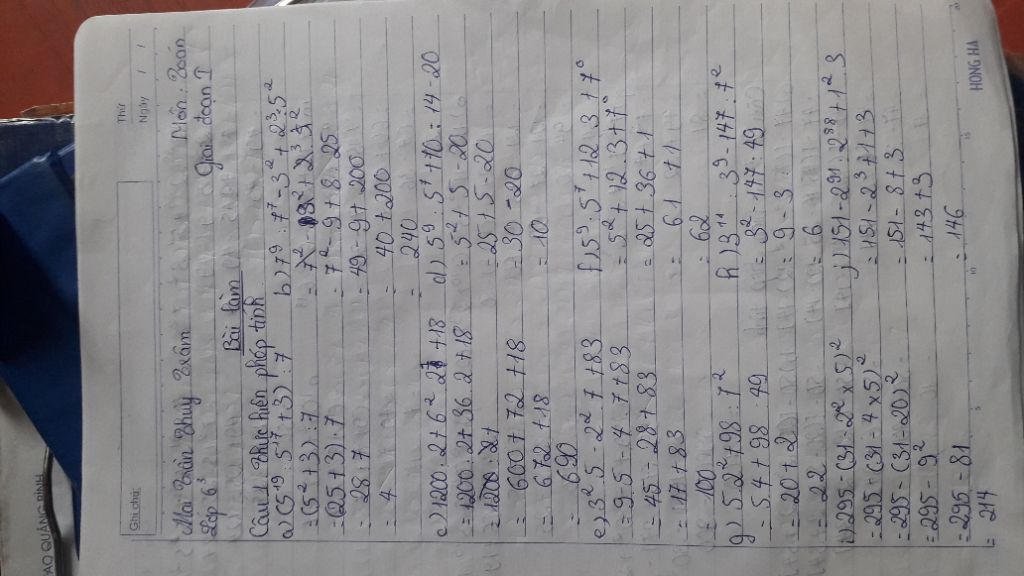 Thứ
Ngày / /
Ghi chú:
Mai Trần Thuý Trâm Môn: Toán
Lớp 6³ Giai đoạn 1
Bài làm
Câu 1 Thực hiện phép tính
a) (5¹⁹ : 5¹⁷ + 3) : 7
= (5² + 3) : 7
= (25 + 3) : 7
= 28 : 7
= 4
b) 7⁹ : 7⁷ - 3² + 2³ . 5²
= 7² - 3² + 2³ . 5²
= 7² - 9 + 8 . 25
= 49 - 9 + 200
= 40 + 200
= 240
c) 1200 : 2 + 6² . 2¹ + 18
= 1200 : 2 + 36 . 2 + 18
= 600 + 72 + 18
= 672 + 18
= 690
d) 5⁹ : 5⁷ + 70 : 14 - 20
= 5² + 5 - 20
= 25 + 5 - 20
= 30 - 20
= 10
e) 3² . 5 - 2² . 7 + 83
= 9 . 5 - 4 . 7 + 83
= 45 - 28 + 83
= 17 + 83
= 100
f) 5⁹ : 5⁷ + 12 . 3 + 7⁰
= 5² + 12 . 3 + 7⁰
= 25 + 36 + 1
= 61 + 1
= 62
g) 5 . 2² + 98 : 7²
= 5 . 4 + 98 : 49
= 20 + 2
= 22
h) 3¹¹ : 3⁹ - 147 : 7²
= 3² - 147 : 49
= 9 - 3
= 6
i) 295 - (31 - 2² x 5)²
= 295 - (31 - 4 x 5)²
= 295 - (31 - 20)²
= 295 - 9²
= 295 - 81
= 214
j) 151 - 2⁹¹ : 2⁸⁸ + 1² . 3
= 151 - 2³ + 1 + 3
= 151 - 8 + 3
= 143 + 3
= 146
HONG HA